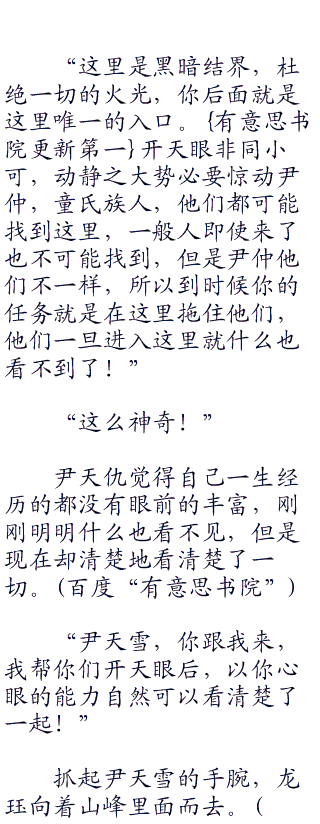 “这里是黑暗结界，杜
绝一切的火光，你后面就是
这里唯一的入口。{有意思书
院更新第一}开天眼非同小
可，动静之大势必要惊动尹
仲，童氏族人，他们都可能
找到这里，一般人即使来了
也不可能找到，但是尹仲他
们不一样，所以到时候你的
任务就是在这里拖住他们，
他们一旦进入这里就什么也
看不到了！”
“这么神奇！”
尹天仇觉得自己一生经
历的都没有眼前的丰富，刚
刚明明什么也看不见，但是
现在却清楚地看清楚了一
切。(百度“有意思书院”)
“尹天雪，你跟我来，
我帮你们开天眼后，以你心
眼的能力自然可以看清楚了
一起！”
抓起尹天雪的手腕，龙
珏向着山峰里面而去。(